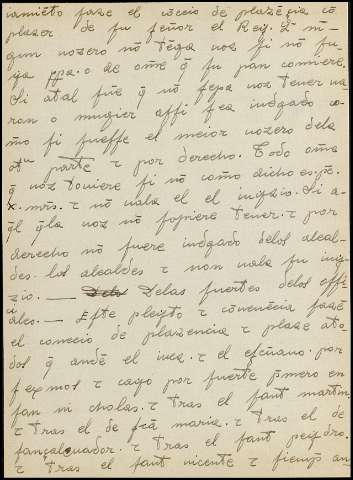 iamiẽto faze el cõceio de plazẽcia cõ
plazer de su señor el Rey. Q̃ nĩ-
gun uozero nõ tẽga uoz si nõ su-
ya ppa. o de ome q̃ su pan comiere.
Si atal fue q̃ nõ sepa uoz tener ua-
ron o mugier assi sea iudgado co-
mo si fuesse el meior uozero dela
ot.ͣ parte τ por derecho. Todo ome
q̃ uoz touiere si nõ como dicho es. pe.
x. mrs. τ nõ uala el el iuyzio. Si a-
q̃l q̃ la uoz nõ sopiere tener. τ por
derecho nõ fuere iudgado delos alcal-
des. los alcaldes τ non uala su iuy-
zio. — Delas suertes delos offi-
ciales. — Este pleyto τ conueñecia fazẽ
el conceio de plazencia τ plaze ato-
dos q̃ andẽ el iuez. τ el escriuano. por
sexmos τ cayo por suerte p̃mero en
san nicholas. τ tras el sant martin
τ tras el de scã maria. τ tras el de
sançaluador. τ tras el sant peydro.
τ tras el sant uicente τ siemp̃ an